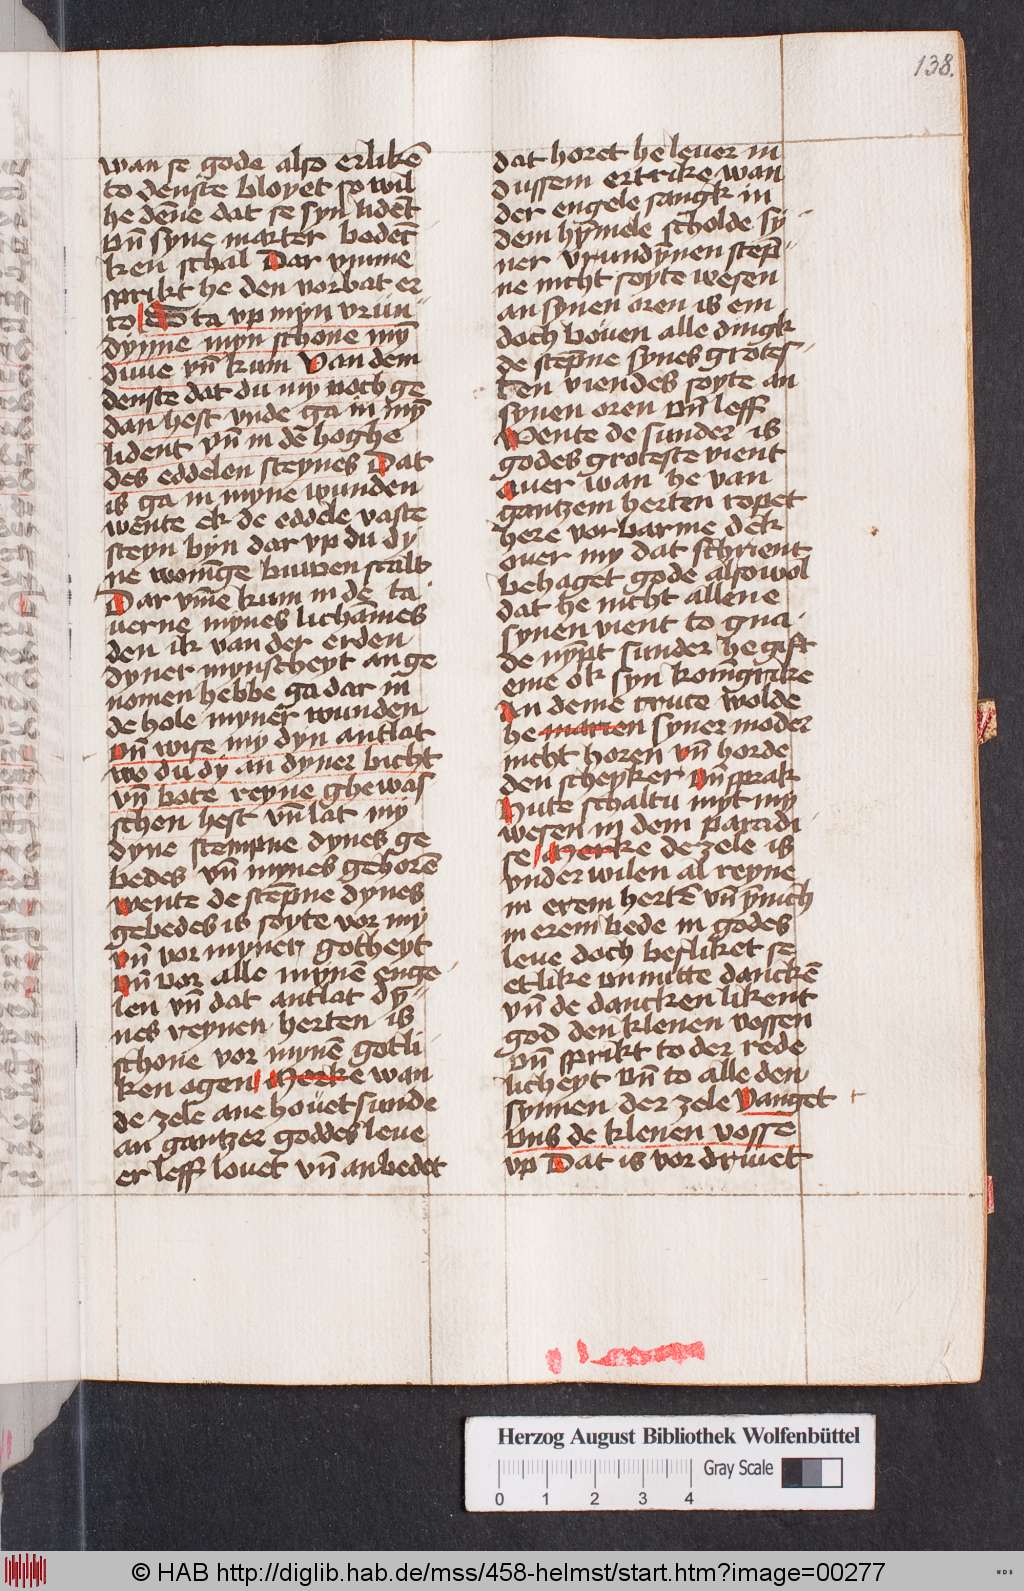 138.
wan se gode also erlikē
to denste bloyet so wil
he dēne dat se syn lidēt
vn̄ syne marter bedec̄
ken schal Dar vmme
sprikt he den vorbat er
to Sta vp myn vrün
dynne myn schone mȳ
duue vn̄ kum Van dem
denste dat du my noch ge
dan hest vnde ga in mȳ
lident vn̄ in dē hoghe
des eddelen steynes Dat
is ga in myne wunden
wente ek de eddele vaste
steyn byn dar vp du dy
ne wonīge buwen scalt
Dar vm̄e kum in de ta
uerne mynes lichāmes
den ik van der erden
dyner mynscheyt an ge
nomen hebbe ga dar in
de hole myner wunden
vn̄ wise my dyn antlat
wo du dy an dyner bicht
vn̄ bote reyne ghewas
schen hest vn̄ lat my
dyne stempne dynes ge
bedes vn̄ mynes gehorē
wente de stēpne dynes
gebedes is soyte vor my
vn̄ vor myner gotheyt
vn̄ vor alle mynē enge
len vn̄ dat antlat dy
nes reynen herten is
schone vor mynē gotli
ken ogen Merke wan
de zele ane houet sunde
an gantzer goddes leue
er leff louet vn̄ anbedet
dat horet he leuer in
dussem ertrike wan
der engele sangk in
dem hȳmele scholde sy
ner vrundynen stēp
ne nicht soyte wesen
an synen oren is em
doch bouen alle dingk
de stēpne synes grotes
ten viendes soyte an
synen oren vn̄ leff
Wente de sunder is
godes groteste vient
Auer wan he van
gantzem herten ropet
here vorbarme dek
ouer my dat schrient
behaget gode also wol
dat he nicht allene
synen vient to gna
de nȳpt sunder he gift
eme ok syn konīgrike
An deme cruce wolde
he marten syner moder
nicht horen vn̄ horde
den schepker vn̄ sprak
Hute schaltu myt my
wesen in dem paradi
se Merke de zele is
vnder wilen al reyne
in erem hertē vn̄ ynnich
in erem bede in godes
leue doch befliket se
etlike vnnutte danckē
vn̄ de dancken likent
god den klenen vossen
vn̄ sprikt to der rede
licheyt vn̄ to alle den
synnen der zele Vanget
vns de klenen vosse
vp Dat is vor driuet
Herzog August Bibliothek Wolfenbüttel
Gray Scale
0 1 2 3 4
© HAB http://diglib.hab.de/mss/458-helmst/start.htm?image=00277